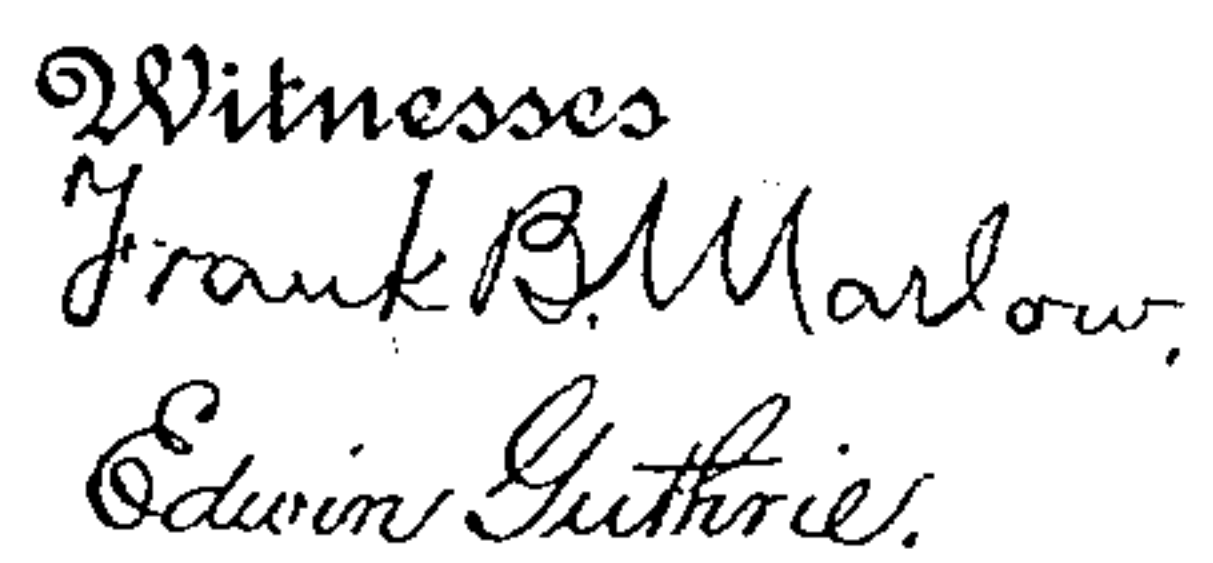 Witnesses
Frank B. Marlow.
Edwin Guthrie.